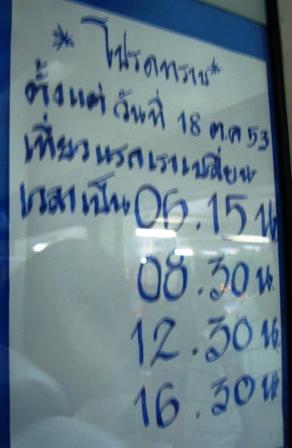 * โปรดทราบ *
ตั้งแต่ วันที่ 18 ต.ค 53
เที่ยวแรกเราเปลี่ยน
เวลาเป็น 06.15 น
08.30 น.
12.30 น.
16.30 น.